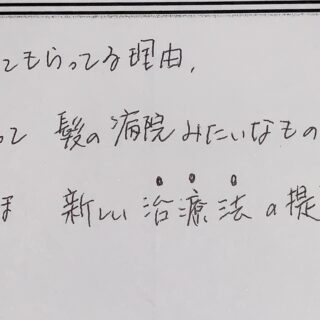 てもらってる理由、
って 髪の病院みたいなもの
ま 新しい治療法の提